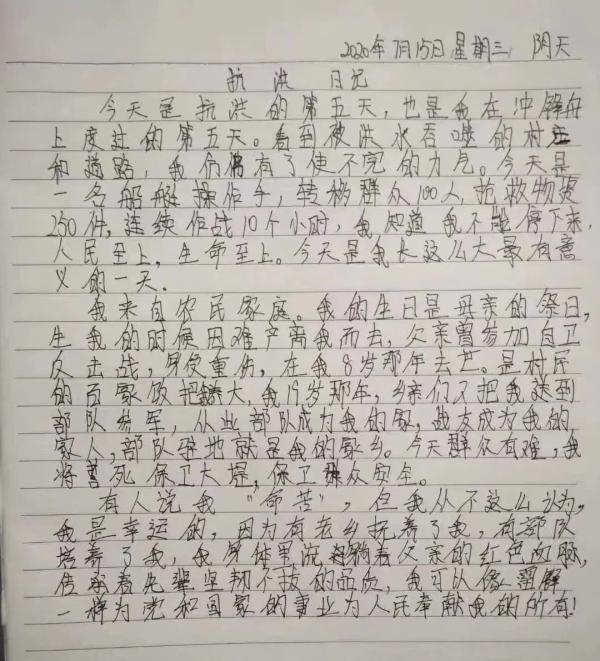 2020年7月15日 星期三 阴天
抗洪 日记
今天是抗洪的第五天，也是我在冲锋舟
上度过的第五天。看到被洪水吞噬的村庄
和道路，我仍有了使不完的力气。今天是
一名船艇操作手，转移群众100人，抢救物资
250件，连续作战10个小时，我知道我不能停下来，
人民至上，生命至上。今天是我长这么大最有意
义的一天.
我来自农民家庭。我的生日是母亲的祭日，
生我的时候因难产离我而去，父亲曾参加自卫
反击战，身受重伤，在我8岁那年去世。是村民
的百家饭把大，我19岁那年，乡亲们又把我送到
部队参军，从此部队成为我的家，战友成为我的
家人，部队驻地就是我的家乡。今天群众有难，我
将誓死保卫大堤，保卫群众安全。
有人说我"命苦"，但我从不这么认为，
我是幸运的，因为有老乡抚养了我，有部队
培养了我，我身体里流淌着父亲的红色血脉，
传承着先辈坚韧不拔的品质，我可以像
一样为党和国家的事业为人民奉献我的所有！